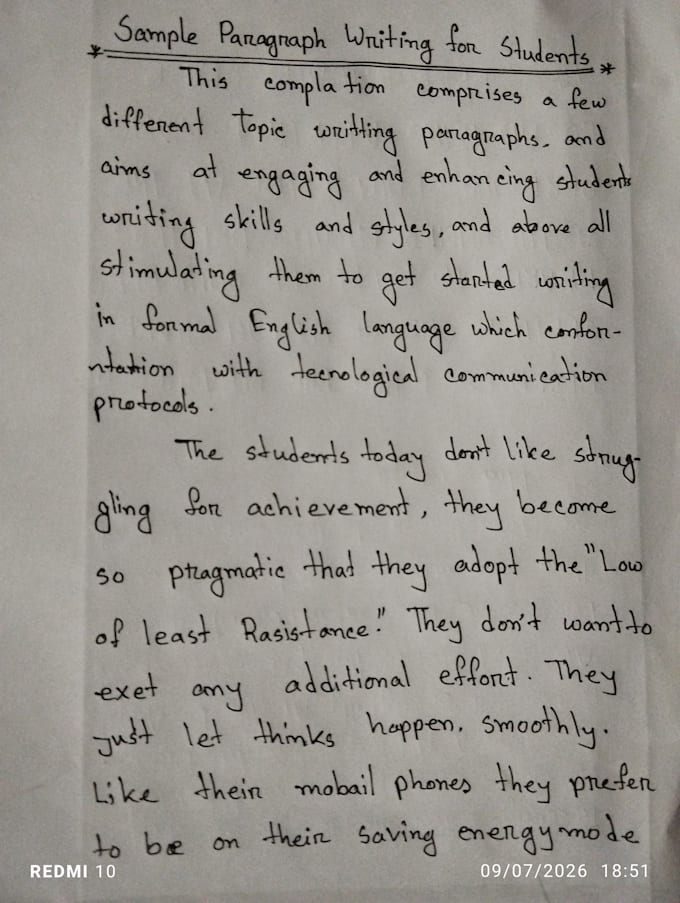 Sample Paragraph Writing for Students
This complation comprises a few
different topic writting paragraphs, and
aims at engaging and enhancing students
writing skills and styles, and above all
stimulating them to get started writing
in formal English language which confor-
ntation with tecnological communication
protocols.
The students today don't like strug-
gling for achievement, they become
so pragmatic that they adopt the "Low
of least Rasistance." They don't want to
exet any additional effort. They
just let thinks happen. smoothly.
Like their mobail phones they prefer
to be on their saving energy mode
REDMI 10
09/07/2026 18:51